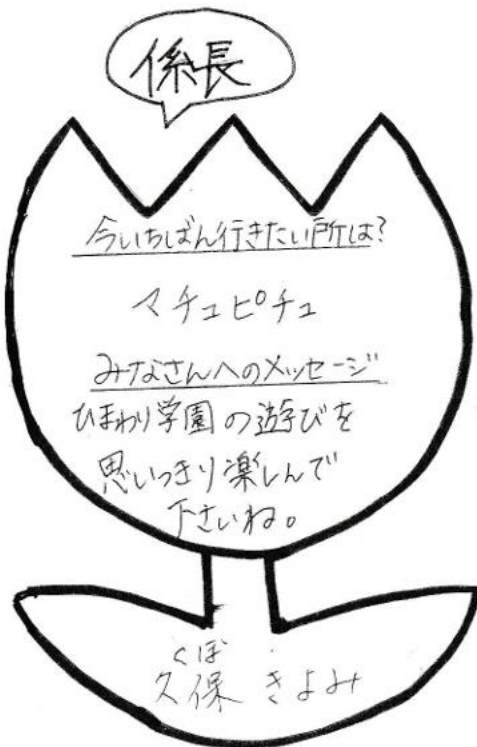 係長
今いちばん行きたい所は?
マチュピチュ
みなさんへのメッセージ
ひまわり学園の遊びを
思いっきり楽しんで
下さいね。
くぼ
久保 きよみ